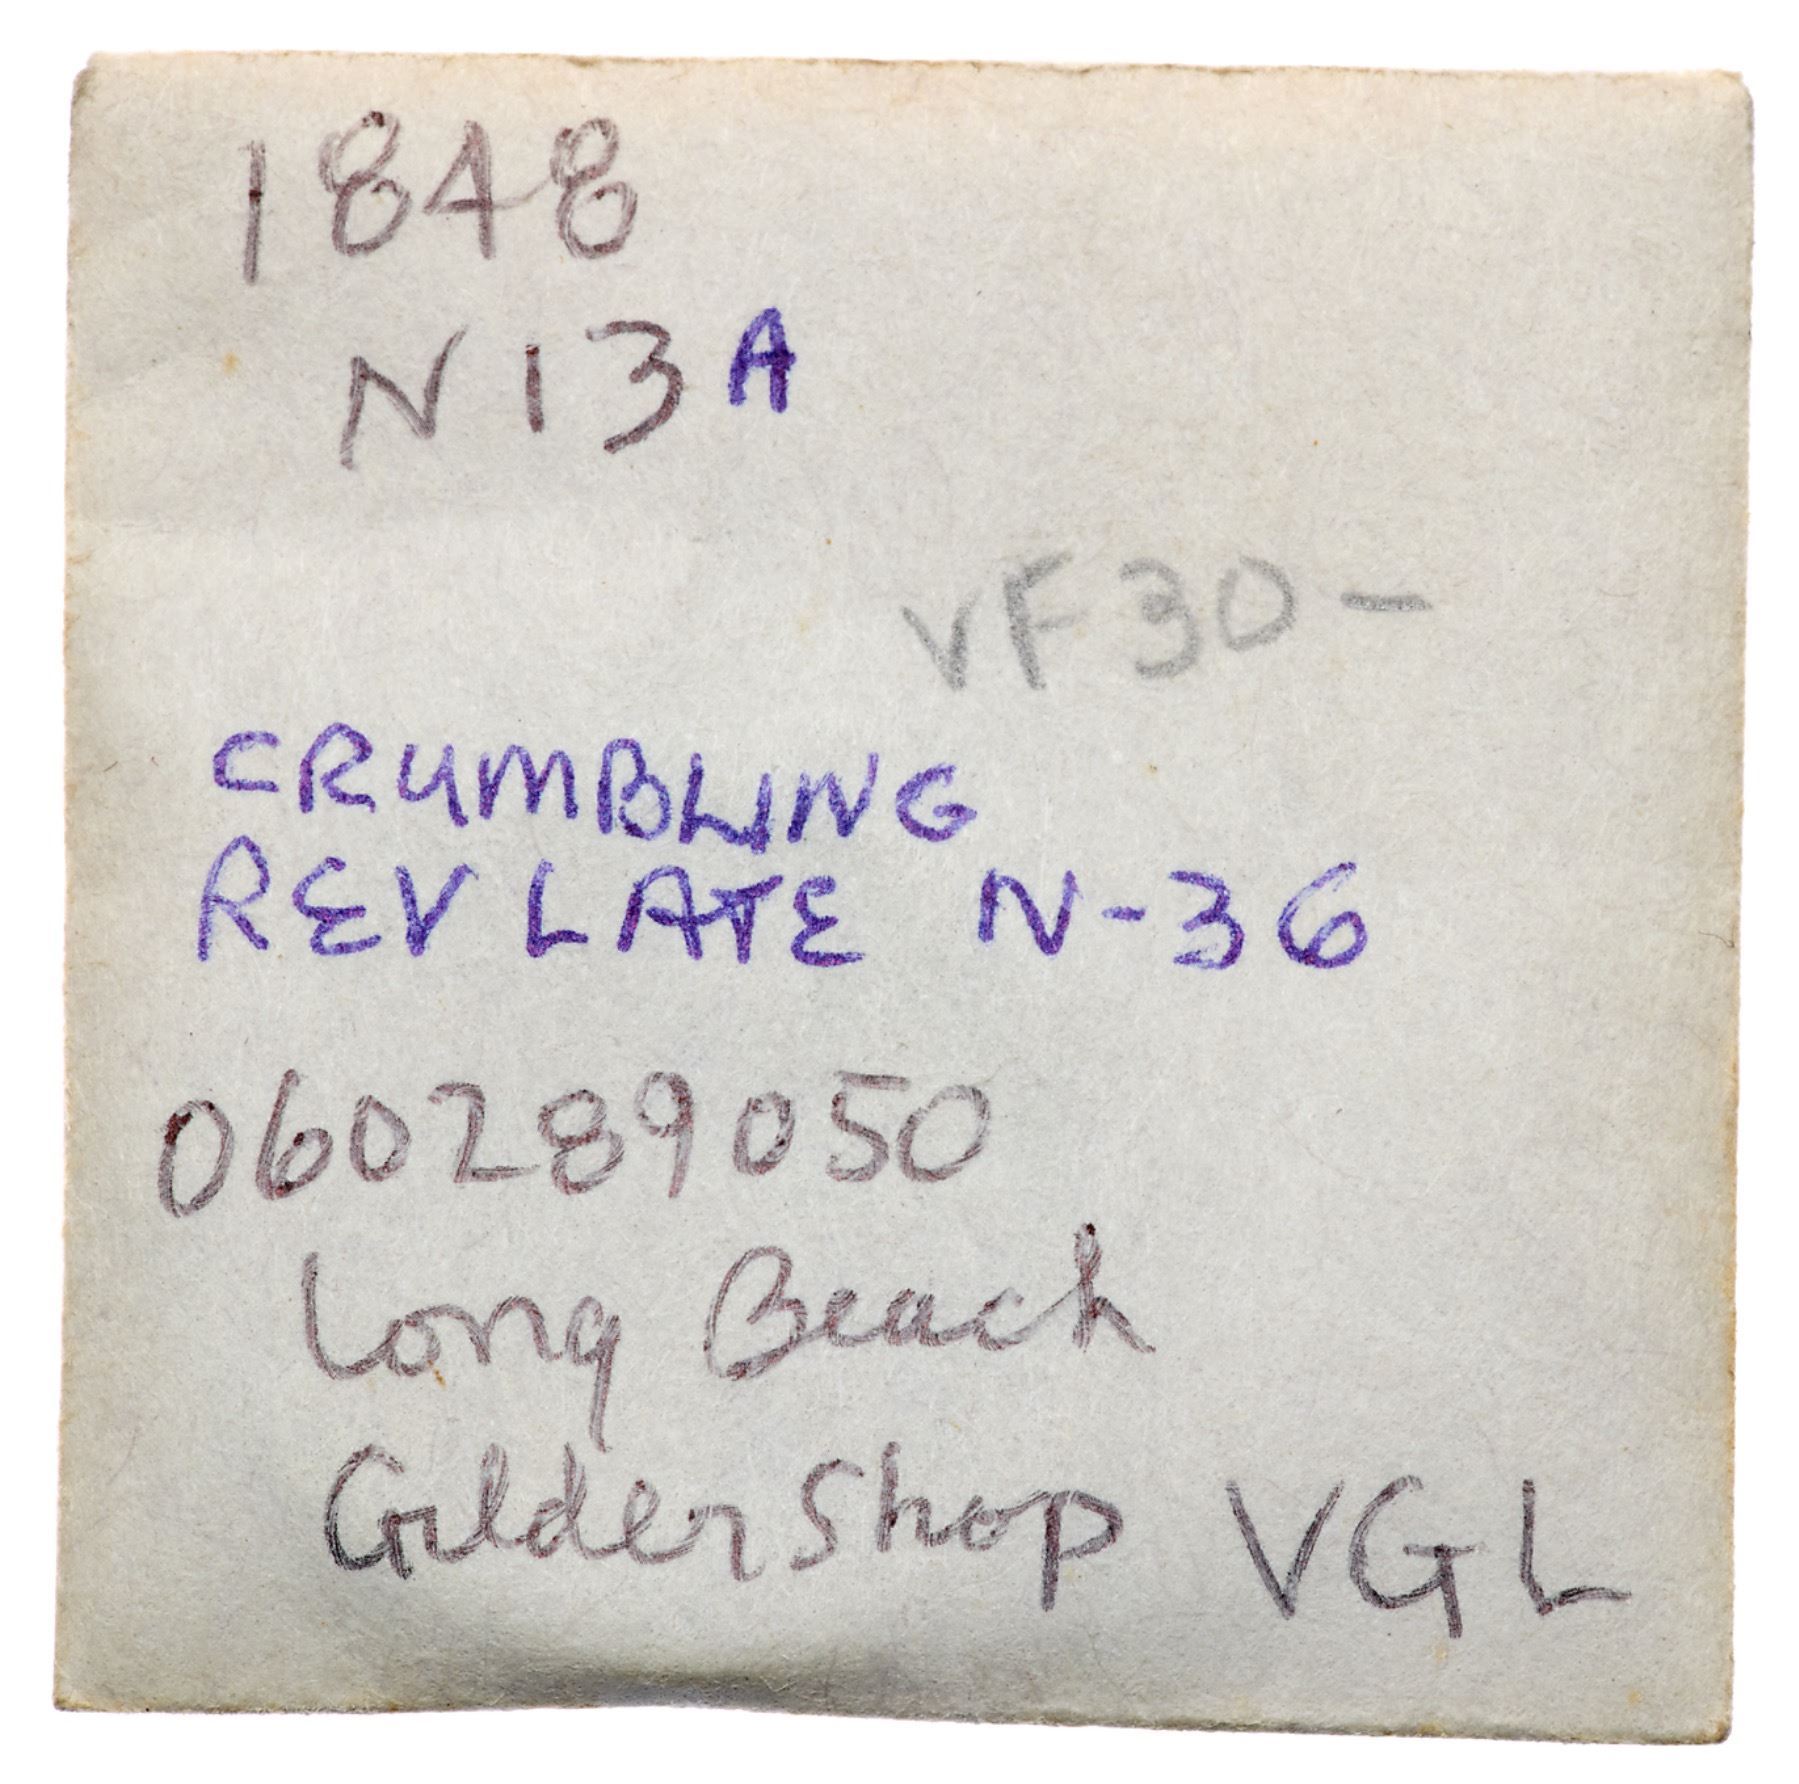 1848
N13A
VF30-
CRUMBLING
REV LATE N-36
060289050
Long Beach
Gilder Shop VGL